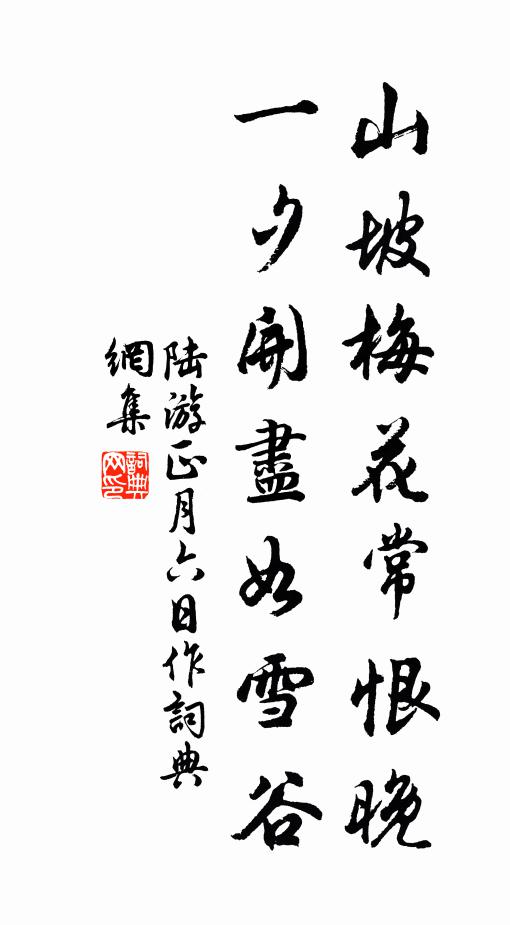 山坡梅花常恨晚
一夕開盡如雪谷
陆游正月六日作詞典
網集
詞典
网印